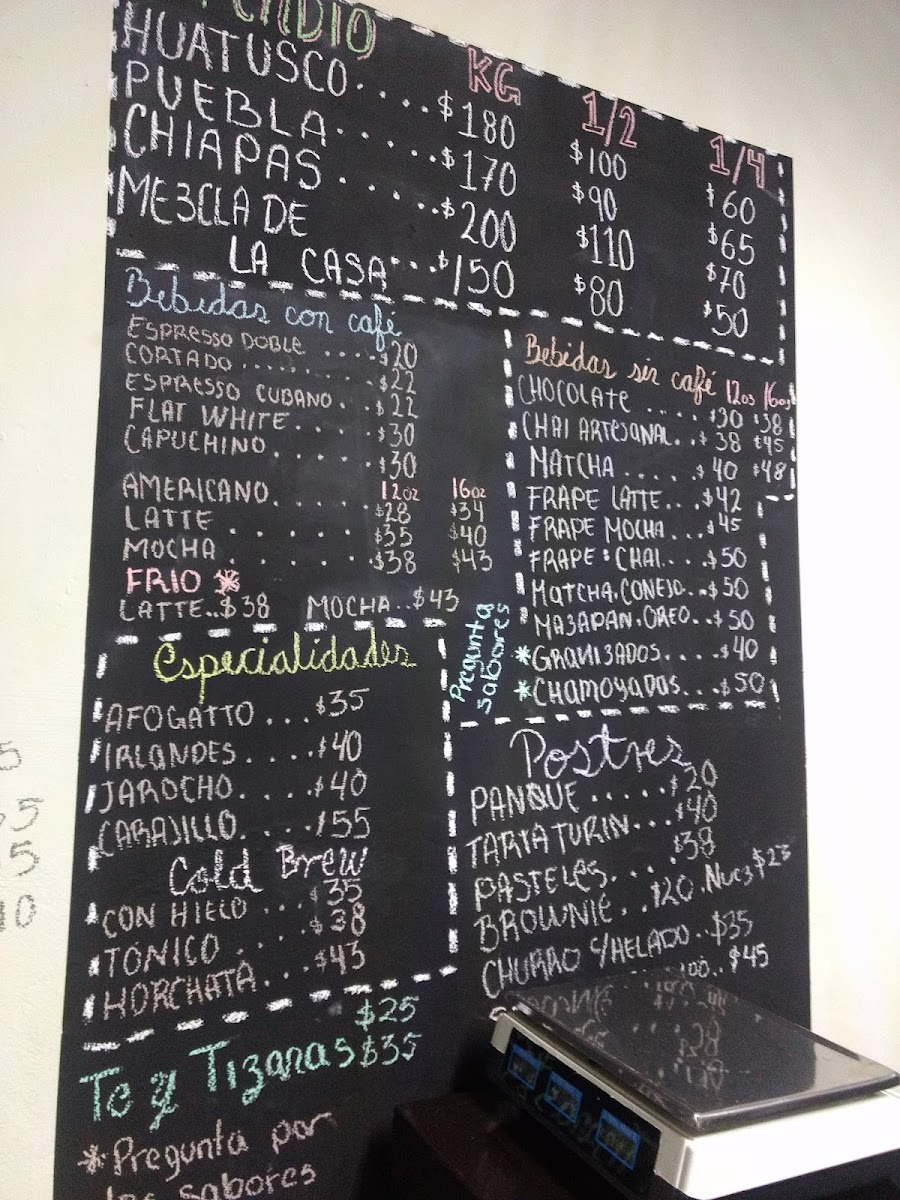 KG 1/2 1/4
HUATUSCO.... $180 $100 $60
PUEBLA..... $170 $90 $65
CHIAPAS...... $200 $110 $70
MEZCLA DE
LA CASA... $150 $80 $50
Bebidas con café
ESPRESSO DOBLE .... $20
CORTADO .......... $22
ESPRESSO CUBANO .. $22
FLAT WHITE..... $30
CAPUCHINO ...... $30
12oz 16oz
AMERICANO...... $28 $34
LATTE ........ $35 $40
MOCHA ........ $38 $43
FRIO *
LATTE..$38 MOCHA..$43
Bebidas sin café 12oz 16oz
CHOCOLATE ..... $30 $38
CHAI ARTESANAL.. $38 $45
MATCHA ..... $40 $48
FRAPE LATTE... $42
FRAPE MOCHA... $45
FRAPE CHAI.... $50
MATCHA, CONEJO... $50
MAZAPAN, OREO.. $50
*GRANIZADOS.... $40
*CHAMOYADAS... $50
Pregunta
sabores
Especialidades
AFOGATTO ... $35
IRLANDES .... $40
JAROCHO..... $40
CARAJILLO.... $55
Cold Brew
CON HIELO ... $35
TÓNICO ..... $38
HORCHATA... $43
Postres
PANQUE ..... $20
TARTA TURIN... $40
PASTELES..... $38
BROWNIE.. $20. Nuez $23
CHURRO C/HELADO.. $35
$45
$25
Te y Tizanas $35
*Pregunta por
los sabores